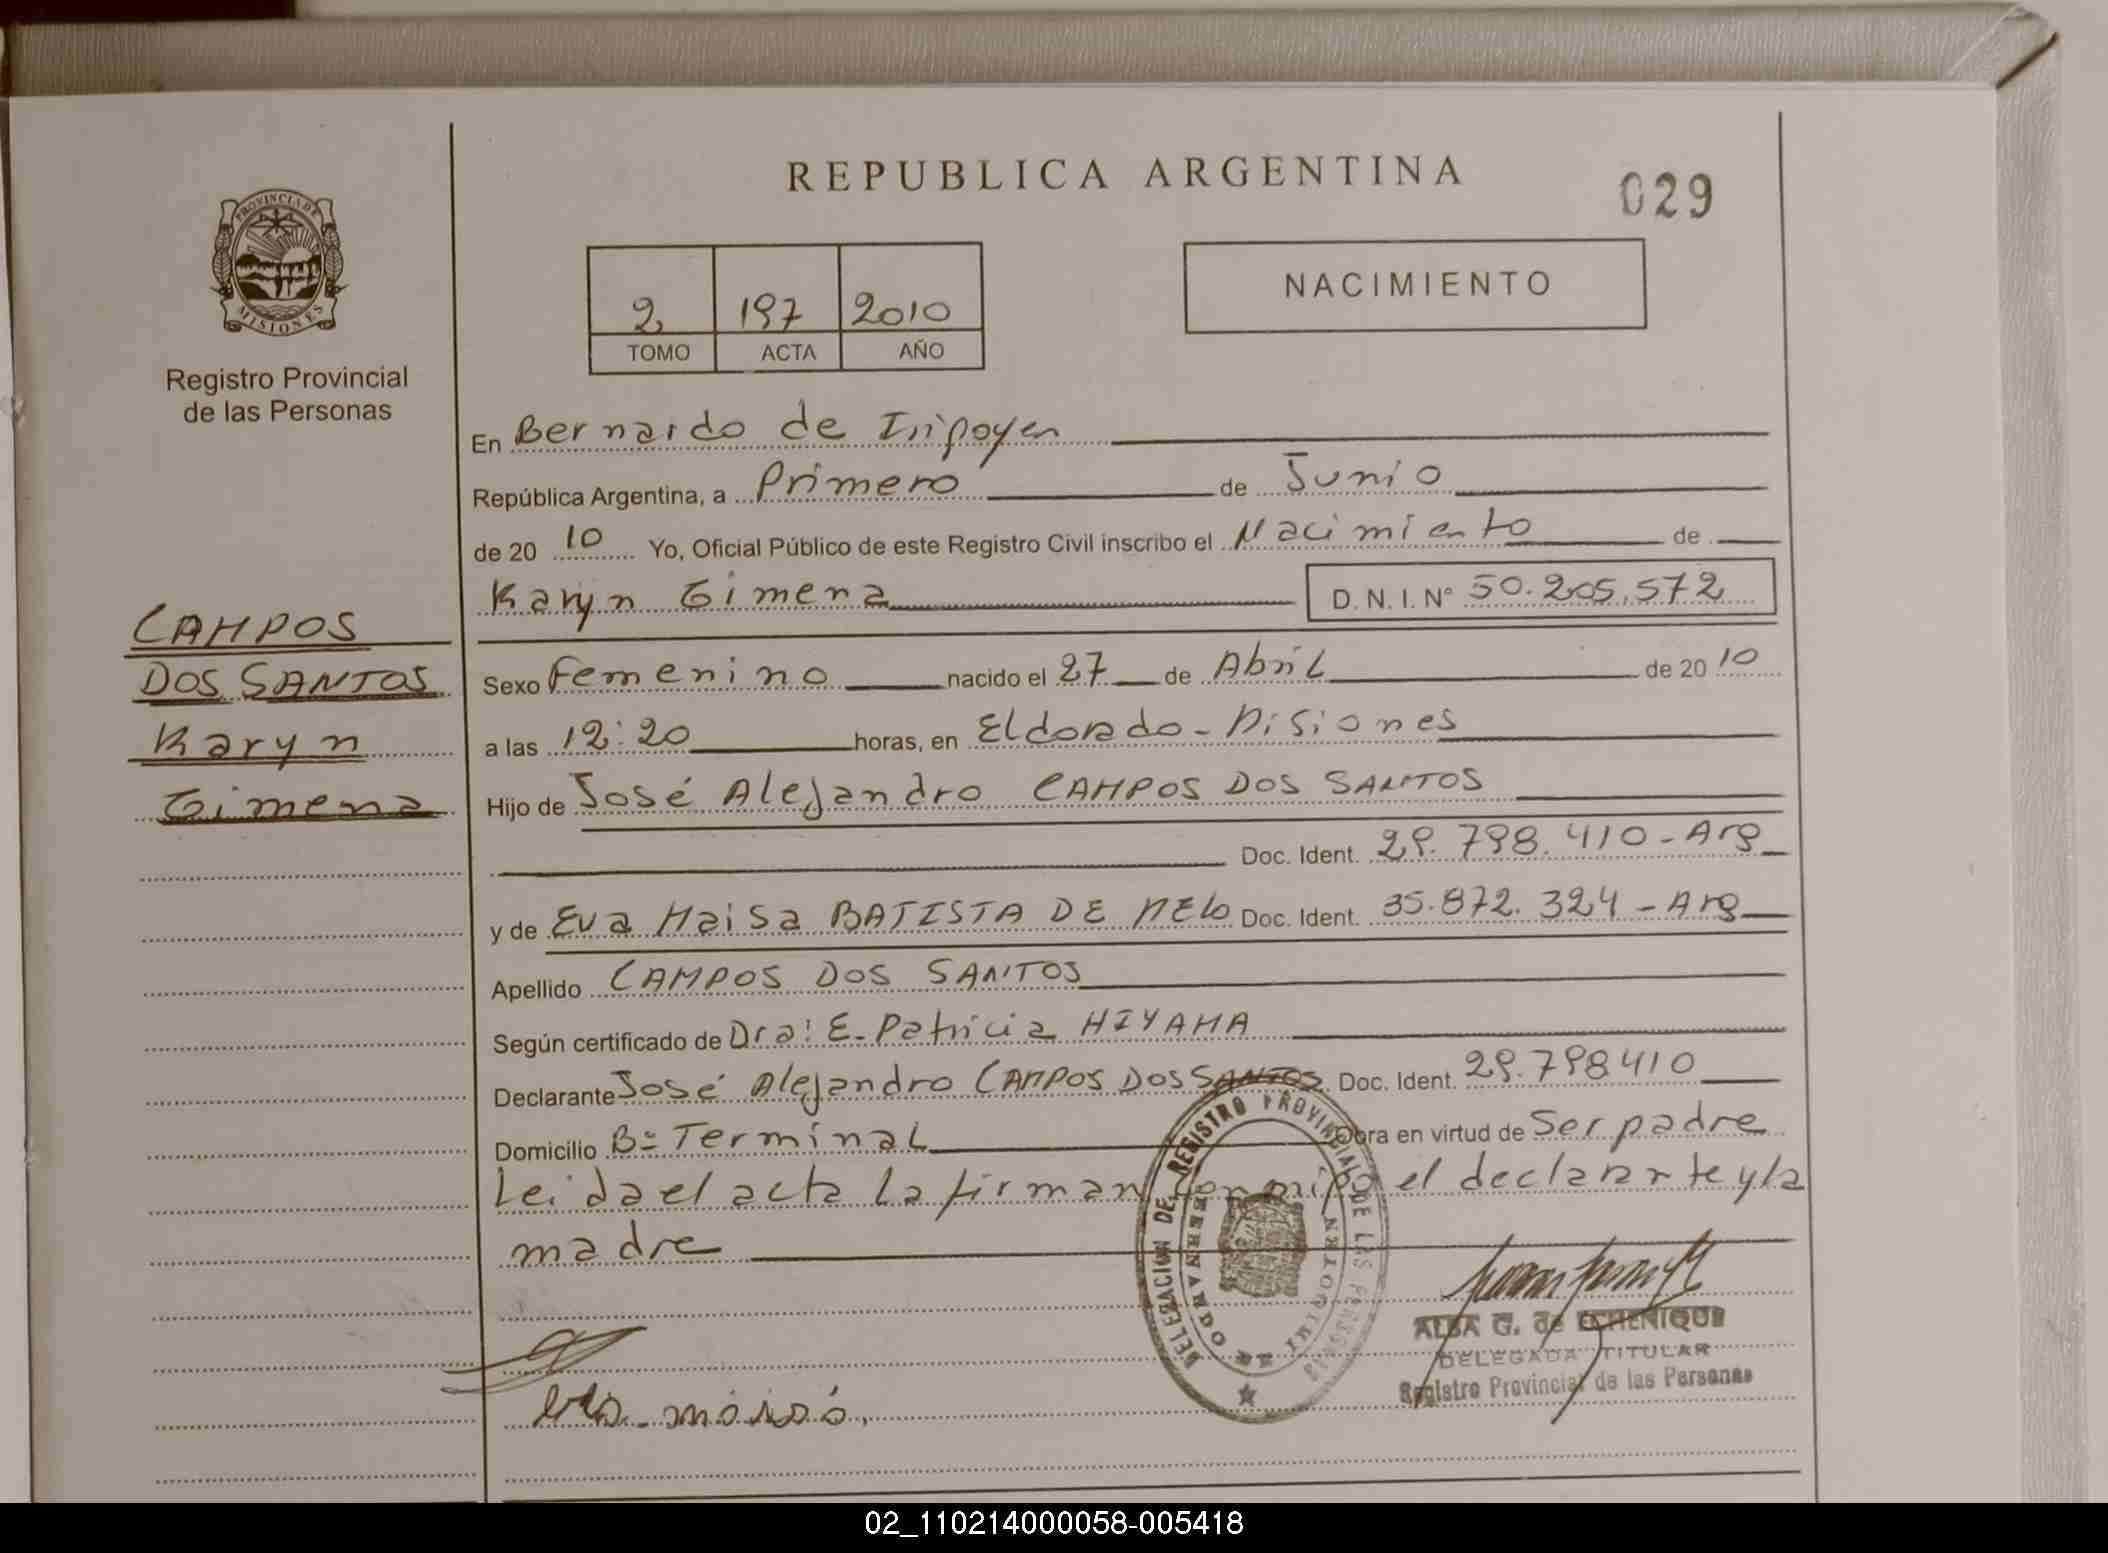 REPUBLICA ARGENTINA
029
PROVINCIA DE
MISIONES
Registro Provincial
de las Personas
2 197 2010
TOMO ACTA AÑO
NACIMIENTO
En Bernardo de Irigoyen
República Argentina, a Primero de Junio
de 20 10 Yo, Oficial Público de este Registro Civil inscribo el Nacimiento de
Karyn Gimena D. N. I. N° 50.205.572
CAMPOS
DOS SANTOS
Karyn
Gimena
Sexo Femenino nacido el 27 de Abril de 20 10
a las 12:20 horas, en Eldorado - Misiones
Hijo de José Alejandro CAMPOS DOS SANTOS
Doc. Ident. 29.798.410 - Arg
y de Eva Maisa BATISTA DE MELO Doc. Ident. 35.872.324 - Arg
Apellido CAMPOS DOS SANTOS
Según certificado de Dra: E. Patricia HIYAMA
Declarante José Alejandro CAMPOS DOS SANTOS Doc. Ident. 29.798410
Domicilio B= Terminal Obra en virtud de Ser padre
Leida el acta la firman conmigo el declarante y la
madre
DELEGACION DEL REGISTRO PROVINCIAL DE LAS PERSONAS
BERNARDO DE IRIGOYEN
ALBA G. de ECHENIQUE
DELEGADA TITULAR
Registro Provincial de las Personas
02_110214000058-005418